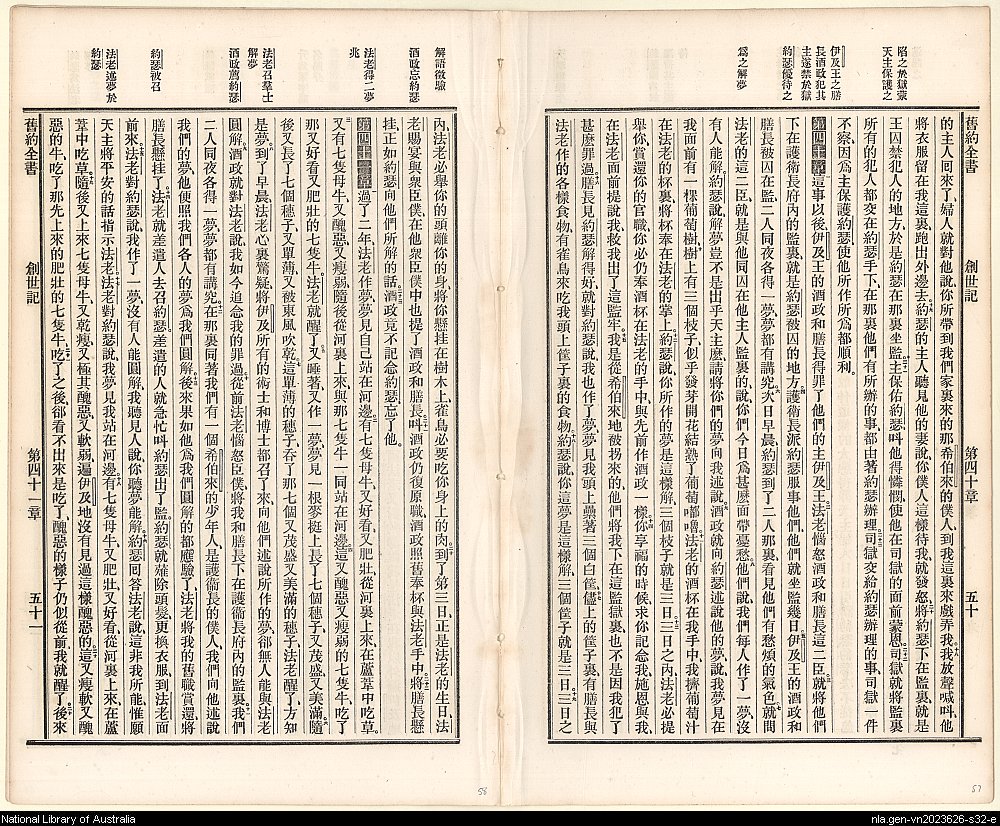 陷之於獄蒙
天主保護之
伊及王之膳
長酒政犯其
主遂禁於獄
約瑟優待之
爲之解夢
舊約全書 創世記 第四十章 五十
的主人回來了婦人就對他說你所帶到我們家裏來的那希伯來的僕人到我這裏來戲弄我我放聲喊叫他
將衣服留在我這裏跑出外邊去約瑟的主人聽見他的妻說你僕人這樣待我就發怒將約瑟下在監裏就是
王囚禁犯人的地方於是約瑟在那裏坐監主保佑約瑟叫他得憐憫使他在司獄的面前蒙恩司獄就將監裏
所有的犯人都交在約瑟手下在那裏他們有所辦的事都由著約瑟辦理司獄交給約瑟辦理的事司獄一件
不察因爲主保護約瑟使他所作所爲都順利
第四十章 這事以後伊及王的酒政和膳長得罪了他們的主伊及王法老惱怒酒政和膳長這二臣就將他們
下在護衛長府內的監裏就是約瑟被囚的地方護衛長派約瑟服事他們他們就坐監幾日伊及王的酒政和
膳長被囚在監二人同夜各得一夢夢都有講究次日早晨約瑟到了二人那裏看見他們有愁煩的氣色就問
法老的這二臣就是與他同囚在他主人監裏的說你們今日爲甚麽面帶憂愁他們說我們每人作了一夢沒
有人能解約瑟說解夢豈不是出乎天主麽請將你們的夢向我述說酒政就向約瑟述說他的夢說我夢見在
我面前有一棵葡萄樹樹上有三個枝子似乎發芽開花結熟了葡萄嘟嚕法老的酒杯在我手中我擠葡萄汁
在法老的杯裏將杯奉在法老的掌上約瑟說你所作的夢是這樣解三個枝子就是三日三日之內法老必提
舉你賞還你的官職你必仍奉酒在法老的手中與先前作酒政一樣你享福的時候求你記念我施恩與我
在法老面前提說我救我出了這監牢我是從希伯來地被拐來的他們將我下在這監獄裏也不是因我犯了
甚麽罪過膳長見約瑟解得好就對約瑟說我也作了夢夢見我頭上藁著三個白筐儘上的筐子裏有膳長與
法老作的各樣食物有雀鳥來吃我頭上筐子裏的食物約瑟說你這夢是這樣解三個筐子就是三日三日之
解語徵驗
酒政忘約瑟
法老得二夢
兆
法老召羣士
解夢
酒政薦約瑟
約瑟被召
法老述夢於
約瑟
內法老必舉你的頭離你的身將你懸挂在樹木上雀鳥必要吃你身上的肉到了第三日正是法老的生日法
老賜宴與衆臣僕在他衆臣僕中也提了酒政和膳長叫酒政仍復原職酒政照舊奉杯與法老手中將膳長懸
挂正如約瑟向他們所解的話酒政竟不記念約瑟忘了他
第四十一章 過了二年法老作夢夢見自己站在河邊有七隻母牛又好看又肥壯從河裏上來在蘆葦中吃草
又有七隻母牛又醜惡又瘦弱隨後從河裏上來與那七隻牛一同站在河邊這又醜惡又瘦弱的七隻牛吃了
那又好看又肥壯的七隻牛法老就醒了又睡著又作一夢夢見一根麥梃上長了七個穗子又茂盛又美滿隨
後又長了七個穗子又單薄又被東風吹乾這單薄的穗子吞了那七個又茂盛又美滿的穗子法老醒了方知
是夢到了早晨法老心裏驚疑將伊及所有的術士和博士都召了來向他們述說所作的夢卻無人能與法老
圓解酒政就對法老說我如今追念我的罪過從前法老惱怒臣僕將我和膳長下在護衞長府內的監裏我們
二人同夜各得一夢夢都有講究在那裏同著我們有一個希伯來的少年人是護衞長的僕人我們向他述說
我們的夢他便照我們各人的夢爲我們圓解後來果如他爲我們圓解的都應驗了法老將我的舊職賞還將
膳長懸挂了法老就差遣人去召約瑟差遣的人就急忙叫約瑟出了監約瑟就薙除頭髮更換衣服到法老面
前來法老對約瑟說我作了一夢沒有人能圓解我聽見人說你聽夢能解約瑟回答法老說這非我所能惟願
天主將平安的話指示法老法老對約瑟說我夢見我站在河邊有七隻母牛又肥壯又好看從河裏上來在蘆
葦中吃草隨後又上來七隻母牛又乾瘦又極其醜惡又軟弱遍伊及地沒有見過這樣醜惡的這又瘦軟又醜
惡的牛吃了那先上來的肥壯的七隻牛吃了之後卻看不出來是吃了醜惡的樣子仍似從前我就醒了後來
舊約全書 創世記 第四十一章 五十一
58
57
National Library of Australia
nla.gen-vn2023626-s32-e